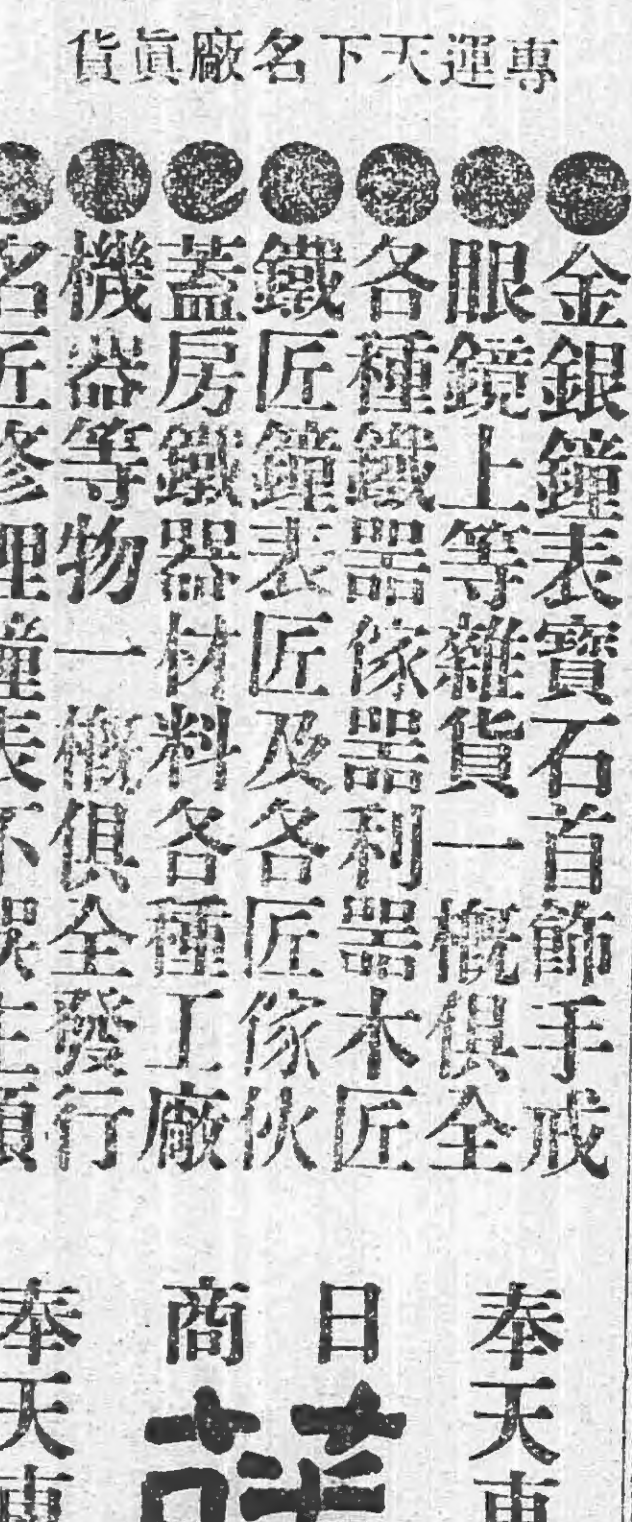 專運天下名廠眞貨
●金銀鐘表寶石首飾手戒
●眼鏡上等雜貨一概俱全
●各種鐵器傢器利器木匠
●鐵匠鐘表匠及各匠傢伙
●蓋房鐵器材料各種工廠
●機器等物一概俱全發行
●名匠修理鐘表不誤主顧
奉天東
日商
奉天東